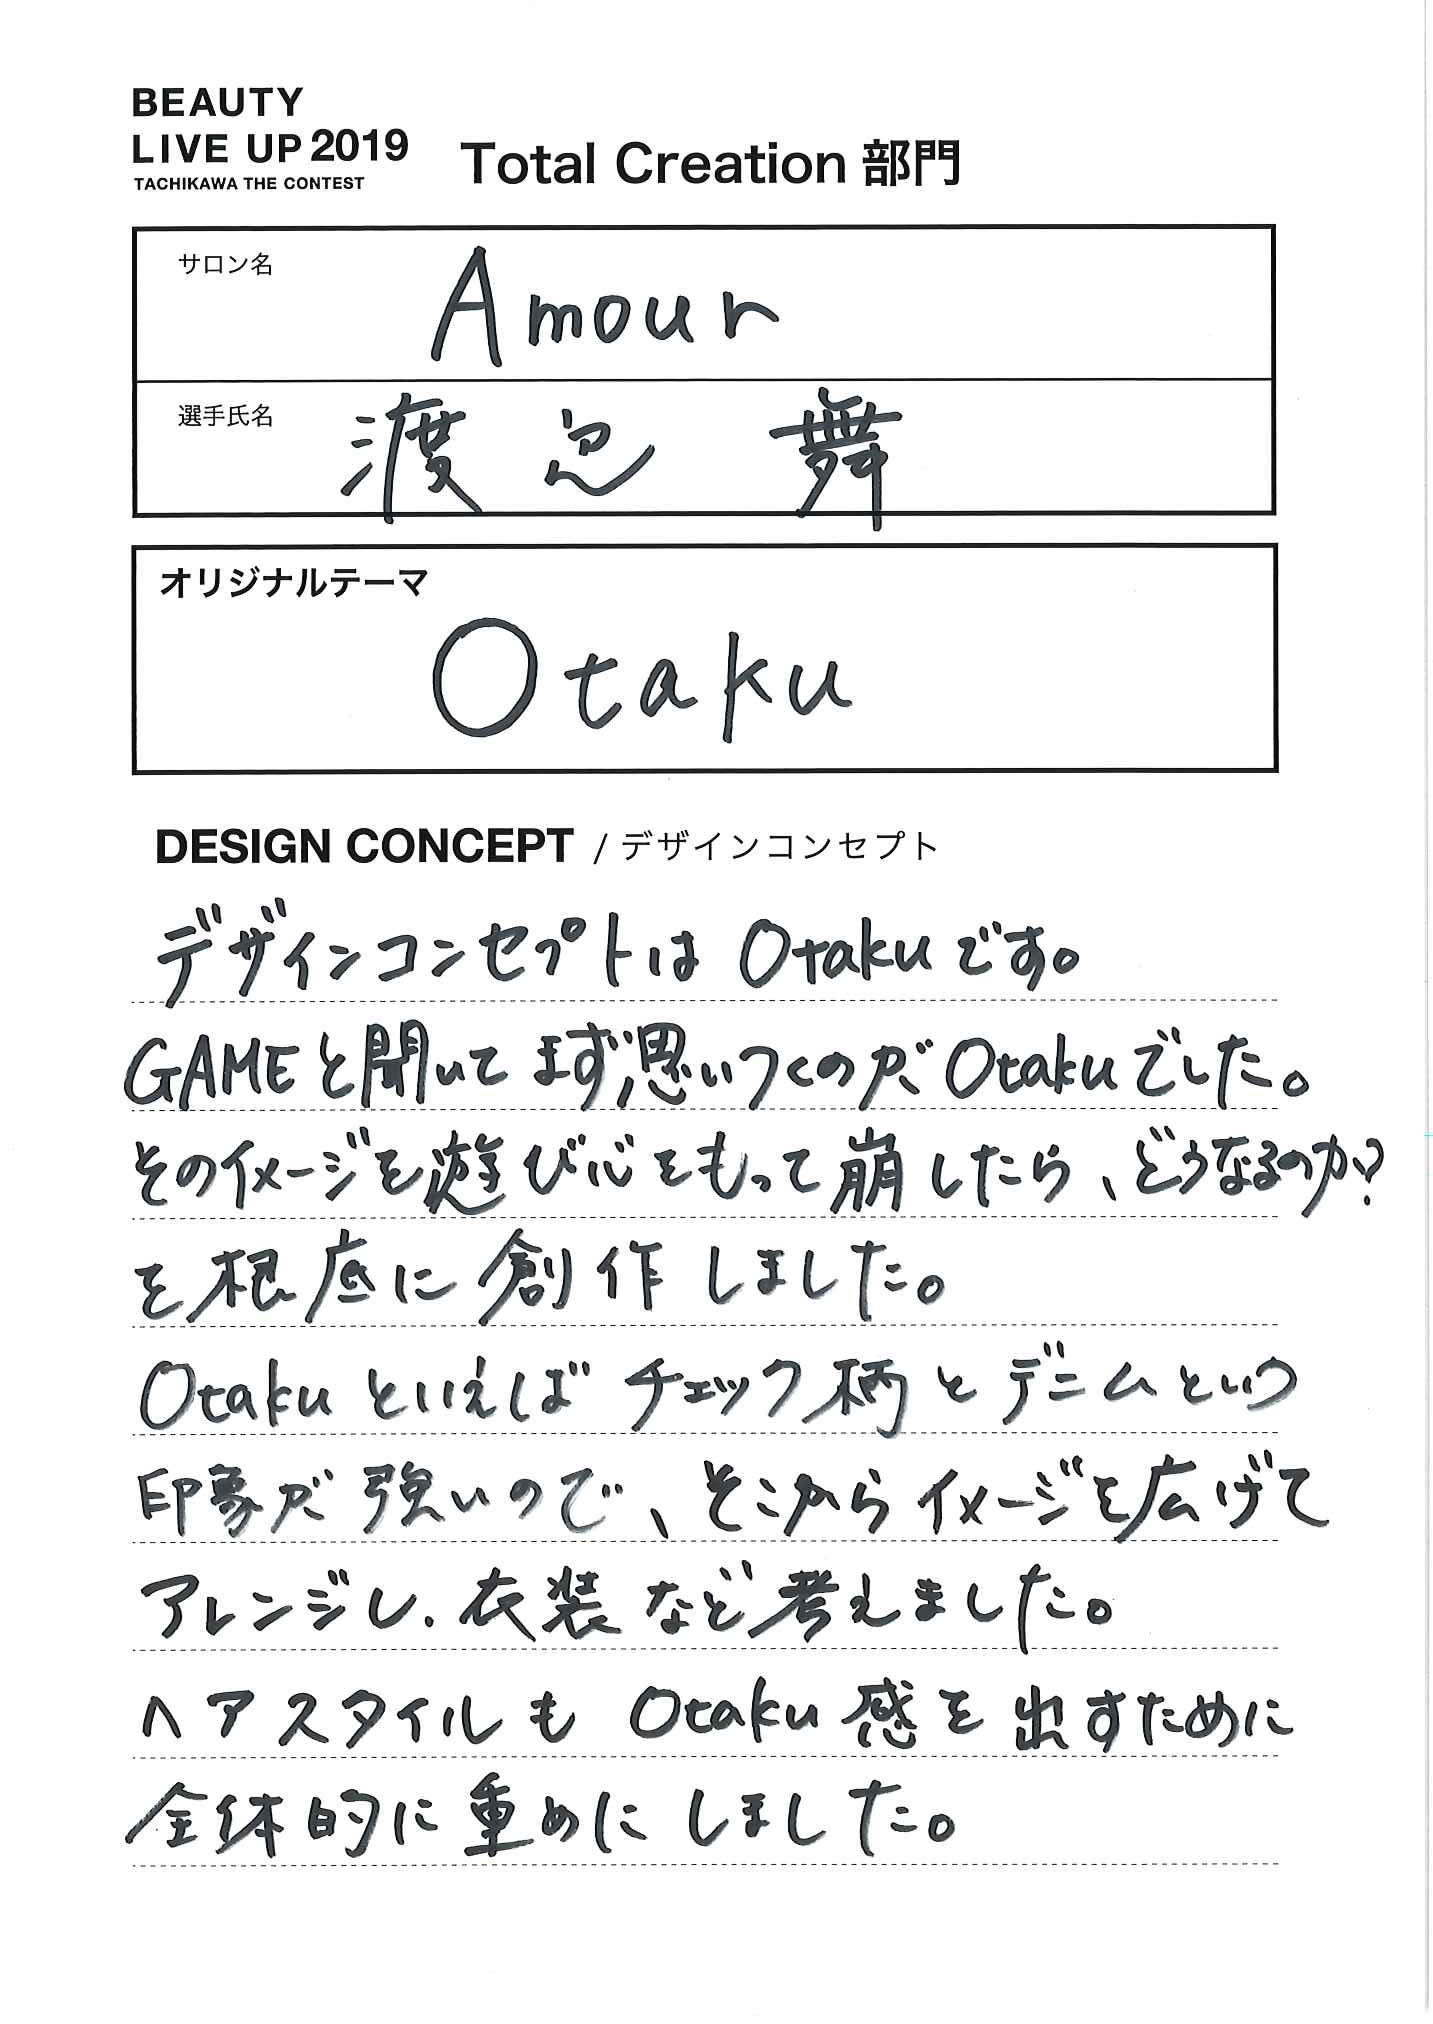 BEAUTY
LIVE UP 2019
TACHIKAWA THE CONTEST
Total Creation 部門
サロン名
Amour
選手氏名
渡辺 舞
オリジナルテーマ
Otaku
DESIGN CONCEPT / デザインコンセプト
デザインコンセプトは Otakuです。
GAMEと聞いてまず思いつくのが Otakuでした。
そのイメージを遊び心をもって崩したら、どうなるのか?
を根底に創作しました。
Otakuといえば チェック柄とデニムという
印象が強いので、そこからイメージを広げて
アレンジし、衣装など考えました。
ヘアスタイルも Otaku感を出すために
全体的に重めにしました。